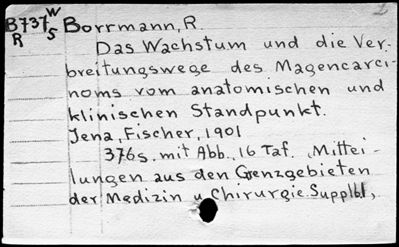 2
B737W Borrmann, R.
R S
Das Wachstum und die Ver-
breitungswege des Magencarci-
noms vom anatomischen und
klinischen Standpunkt.
Jena, Fischer, 1901
376s. mit Abb., 16 Taf. „Mittei-
lungen aus den Grenzgebieten
der Medizin u. Chirurgie. Supplbl,